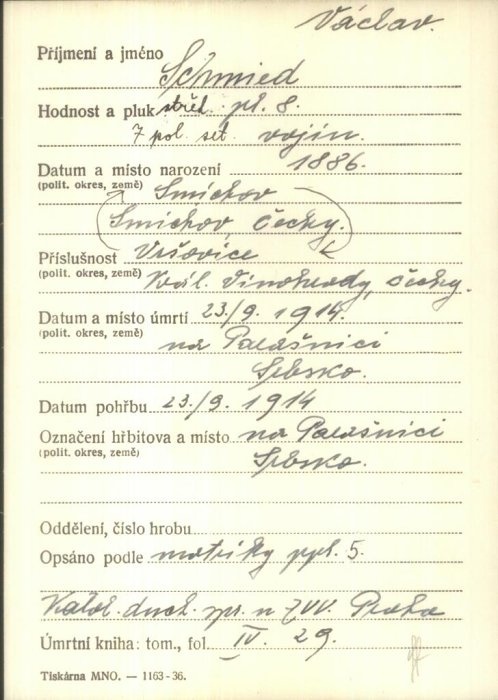 Václav.
Příjmení a jméno Schmied
Hodnost a pluk střel. pl. 8.
7 pol. set. vojín.
Datum a místo narození 1886.
(polit. okres, země) Smíchov
Smíchov, Čechy.
Příslušnost Vršovice
(polit. okres, země) Král. Vinohrady, Čechy.
Datum a místo úmrtí 23./9. 1914.
(polit. okres, země)
na Parašnici
Srbsko.
Datum pohřbu 23./9. 1914
Označení hřbitova a místo na Parašnici
(polit. okres, země)
Srbsko.
Oddělení, číslo hrobu
Opsáno podle matriky ppl. 5.
Katol. duch. spr. u ZVV. Praha
Úmrtní kniha: tom., fol. IV. 29.
Tiskárna MNO. — 1163-36.